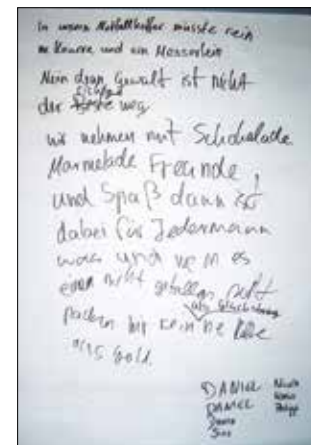 In unsern Notfallkoffer müsste rein
ne Knarre und ein Messerlein
Nein denn Gewalt ist nicht
der richtige Weg
wir nehmen mit Schokolade
Marmelade Freunde,
und Spaß dann ist
dabei für Jedermann
was und wenn es
euch nicht gefallen sollt
packen wir rein ne
aus Gold.
DANIEL
DANIEL